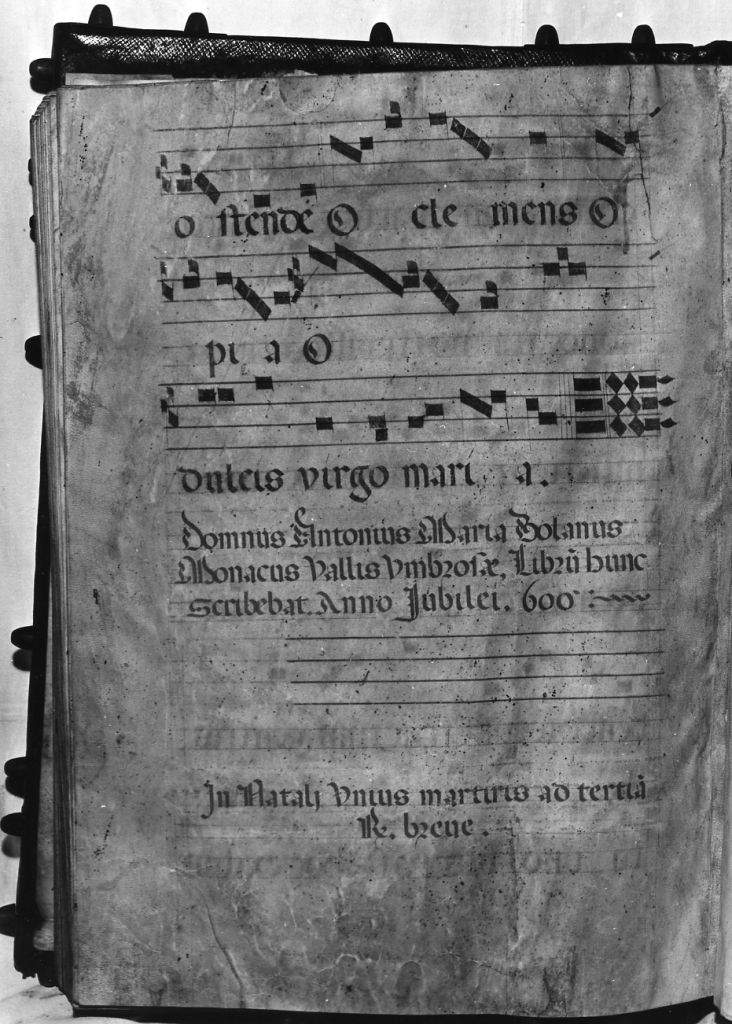 o stende O cle mens O
pi a O
dulcis virgo mari a.
Domnus Antonius Maria Tolanus
Monacus Vallis Vmbrosæ, Librũ hunc
scribebat Anno Jubilei. 600
In Natalj Vnius martiris ad tertiã
R. breue.